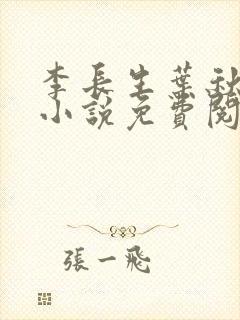 李长生葉秋
小說免費閱
張一飛